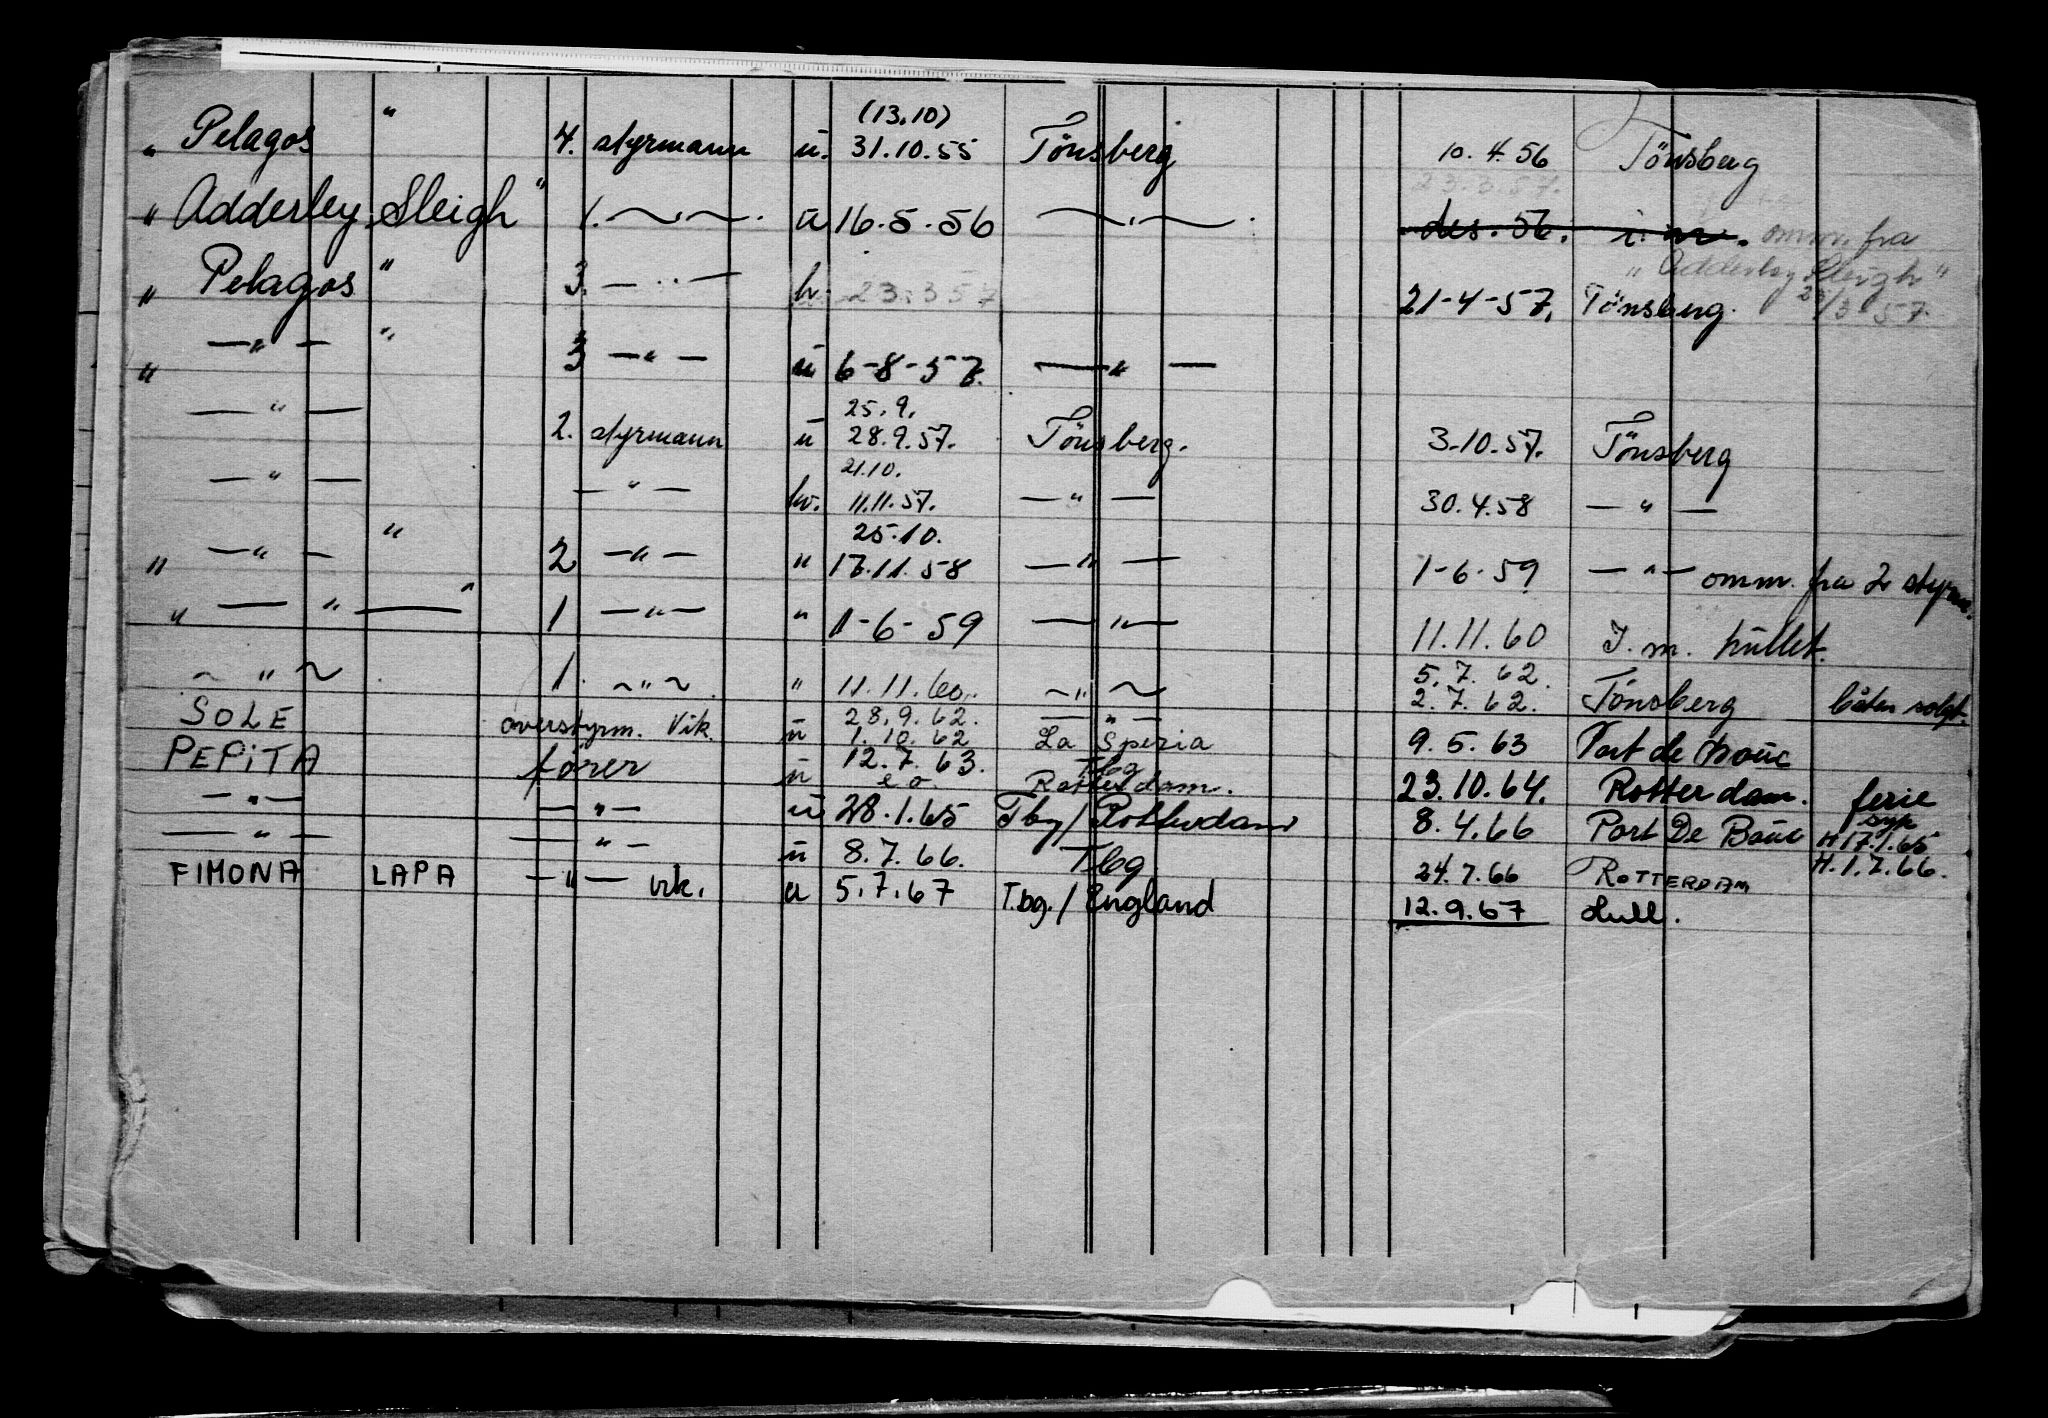 (13.10)
„ Pelagos " 4. styrmann u. 31.10.55 Tönsberg 10.4.56 Tönsberg
23.3.57.
„ Adderley Sleigh " 1. ~ " ~ u 16.5.56 ~ " ~ des. 56. i. m. omm. fra
" Adderley Sleigh "
„ Pelagos " 3. — " — h. 23.3.57 21-4-57. Tönsberg. 23/3-57.
„ — " — " 3 — " — u 6-8-57. — " —
25.9.
— " — 2. styrmann u 28.9.57. Tönsberg. 3.10.57. Tönsberg
21.10.
— " — — " — hv. 11.11.57. — " — 30.4.58 — " —
25.10.
„ — " — " 2 — " — " 17.11.58 — " — 1-6-59 — " — omm. fra 2 styrm.
„ — " — " 1 — " — " 1-6-59 — " — 11.11.60 I. m. hullet.
5.7.62.
~ " ~ 1. ~ " ~ " 11.11.60. ~ " ~ 2.7.62. Tönsberg båten solgt.
28.9.62. — " —
SOLE overstyrm. Vik. u 1.10.62 La Spezia 9.5.63 Port de Bouc
12.7.63. Tbg
PEPITA förer u e.o. Rotterdam. 23.10.64. Rotterdam. ferie
— " — — " — u 28.1.65 Tbg/Rotterdam 8.4.66 Port De Bouc syk H 17.1.65
— " — — " — u 8.7.66. Tbg 24.7.66 ROTTERDAM H.1.7.66.
FIMONA LAPA — " — vik. u 5.7.67 T.bg./England 12.9.67 Hull.